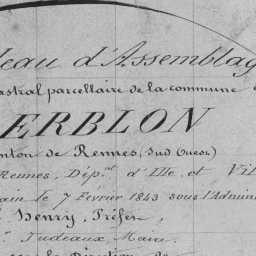 leau d'Assemblag
astral parcellaire de la commune
ERBLON
nton de Rennes, (Sud Ouest)
Rennes, Dépt. d'Ille, et Vil
ain le 7 Février 1843 sous l'Admin
Henry, Préfet,
Judeaux, Maire
la Direction de